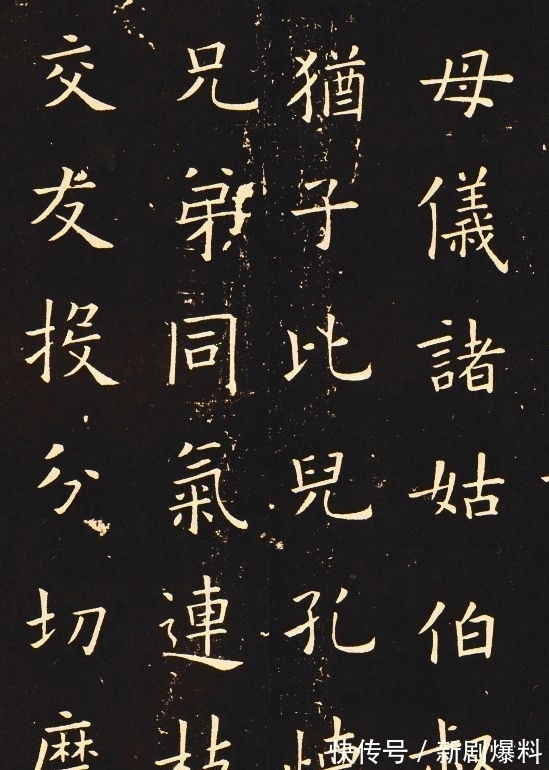 母儀諸姑伯叔
猶子比兒孔懷
兄弟同氣連枝
交友投分切磨
快传号 / 新剧爆料